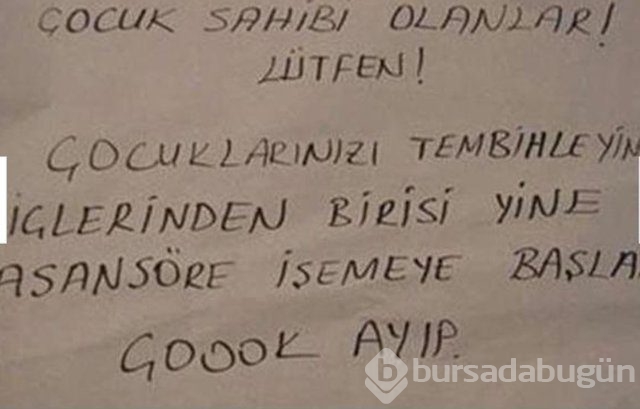 ÇOCUK SAHİBİ OLANLAR!
LÜTFEN!
ÇOCUKLARINIZI TEMBİHLEYİN
İÇLERİNDEN BİRİSİ YİNE
ASANSÖRE İŞEMEYE BAŞLA
ÇOOOK AYIP.
b bursadabugün